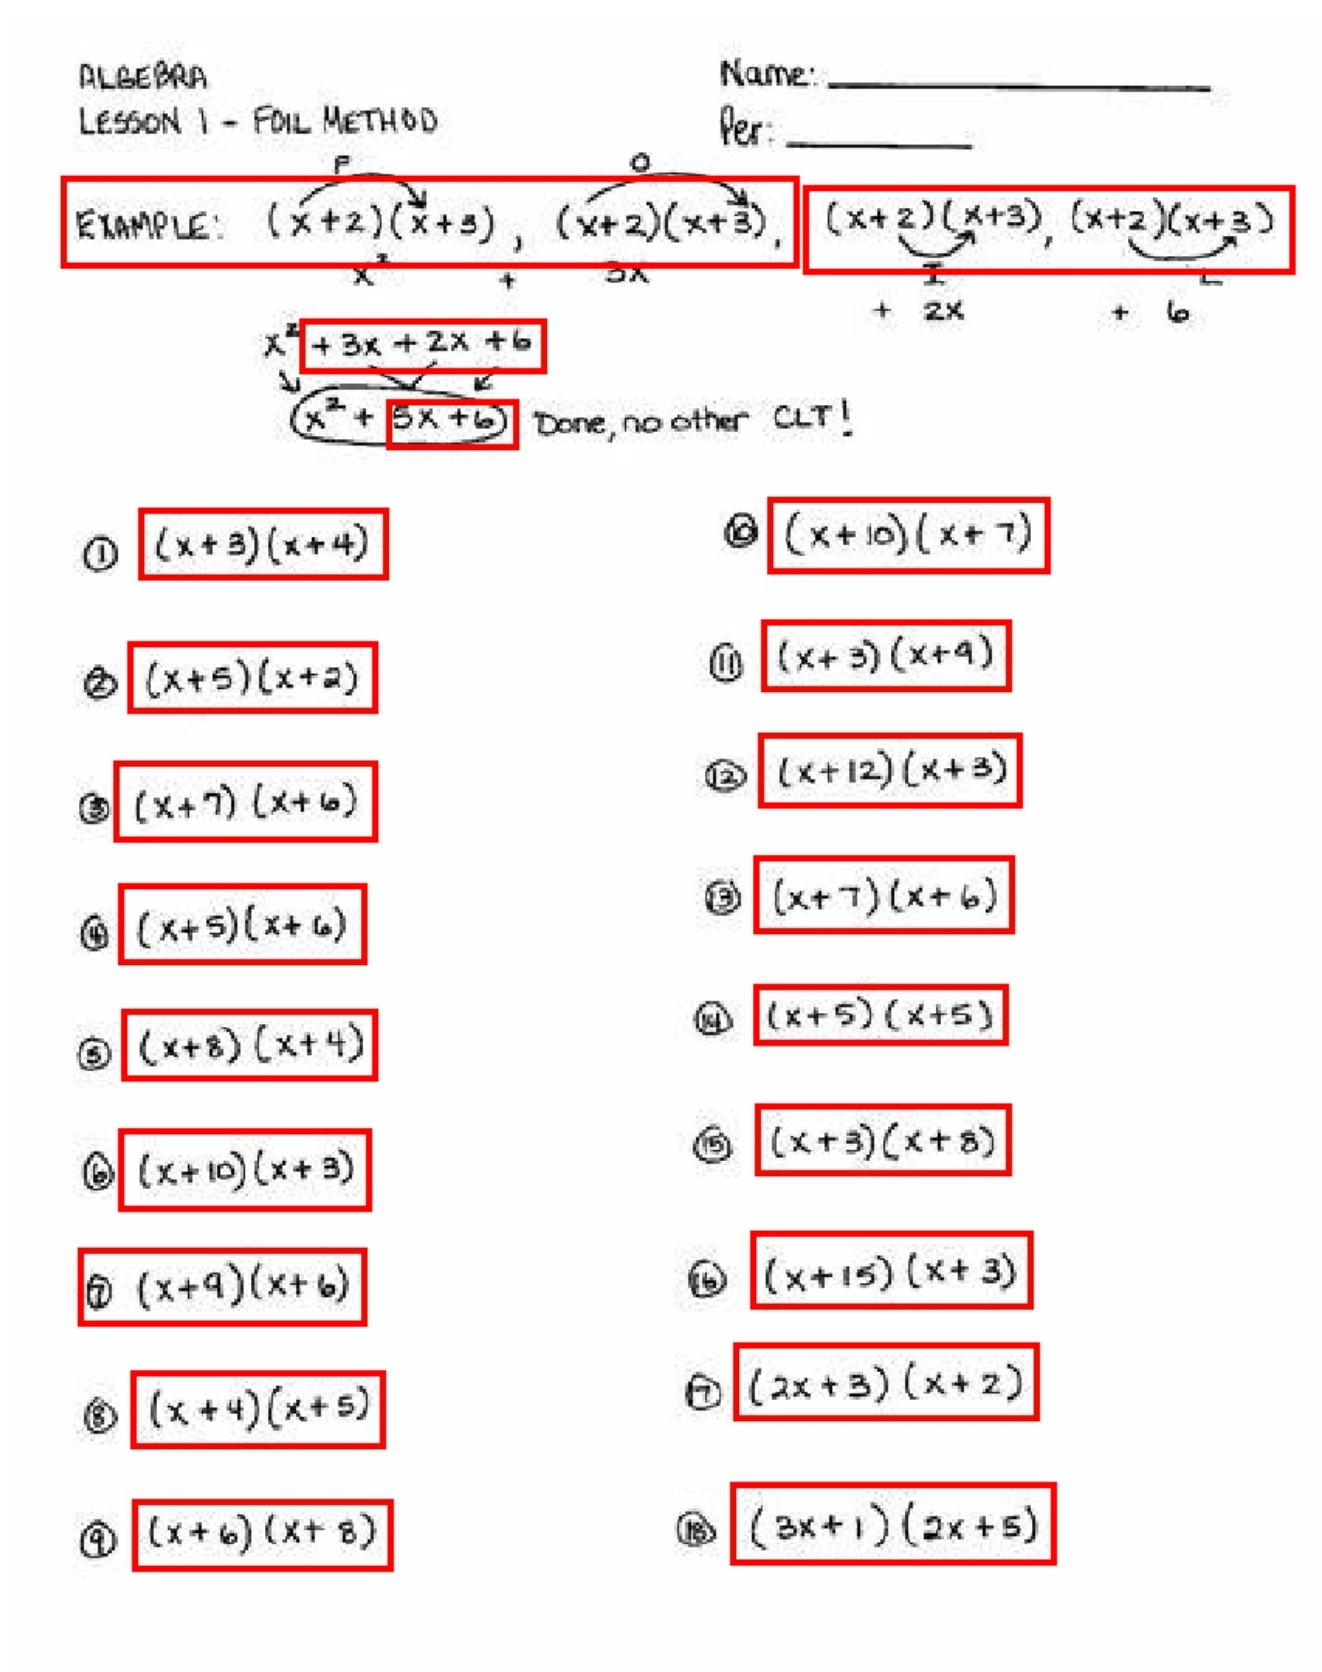 ALGEBRA
Name:
LESSON 1 - FOIL METHOD
Per:
F O
EXAMPLE: (x+2)(x+3), (x+2)(x+3), (x+2)(x+3), (x+2)(x+3)
x² + 3x I L
+ 2x + 6
x² + 3x + 2x + 6
x² + 5x + 6 Done, no other CLT!
① (x+3)(x+4)
② (x+5)(x+2)
③ (x+7)(x+6)
④ (x+5)(x+6)
⑤ (x+8)(x+4)
⑥ (x+10)(x+3)
⑦ (x+9)(x+6)
⑧ (x+4)(x+5)
⑨ (x+6)(x+8)
⑩ (x+10)(x+7)
⑪ (x+3)(x+9)
⑫ (x+12)(x+3)
⑬ (x+7)(x+6)
⑭ (x+5)(x+5)
⑮ (x+3)(x+8)
⑯ (x+15)(x+3)
⑰ (2x+3)(x+2)
⑱ (3x+1)(2x+5)